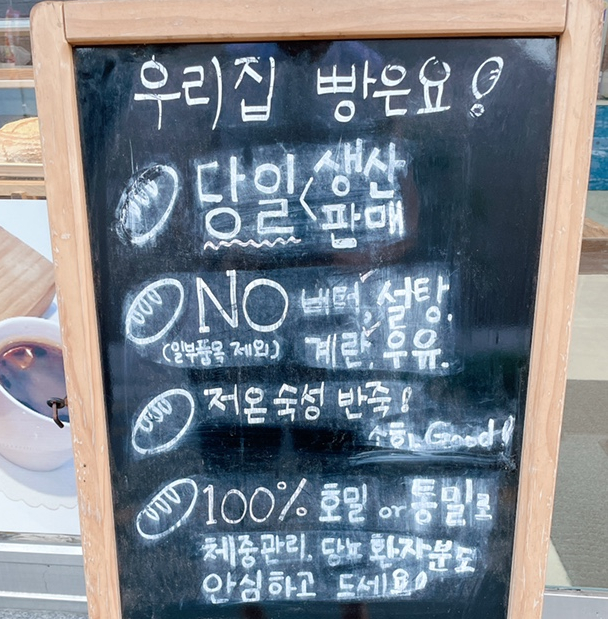 우리집 빵은요!
당일 < 생산
판매
NO 버터, 설탕,
(일부품목 제외) 계란, 우유.
저온 숙성 반죽!
소화 Good!
100% 호밀 or 통밀로
체중관리. 당뇨 환자분도
안심하고 드세요!